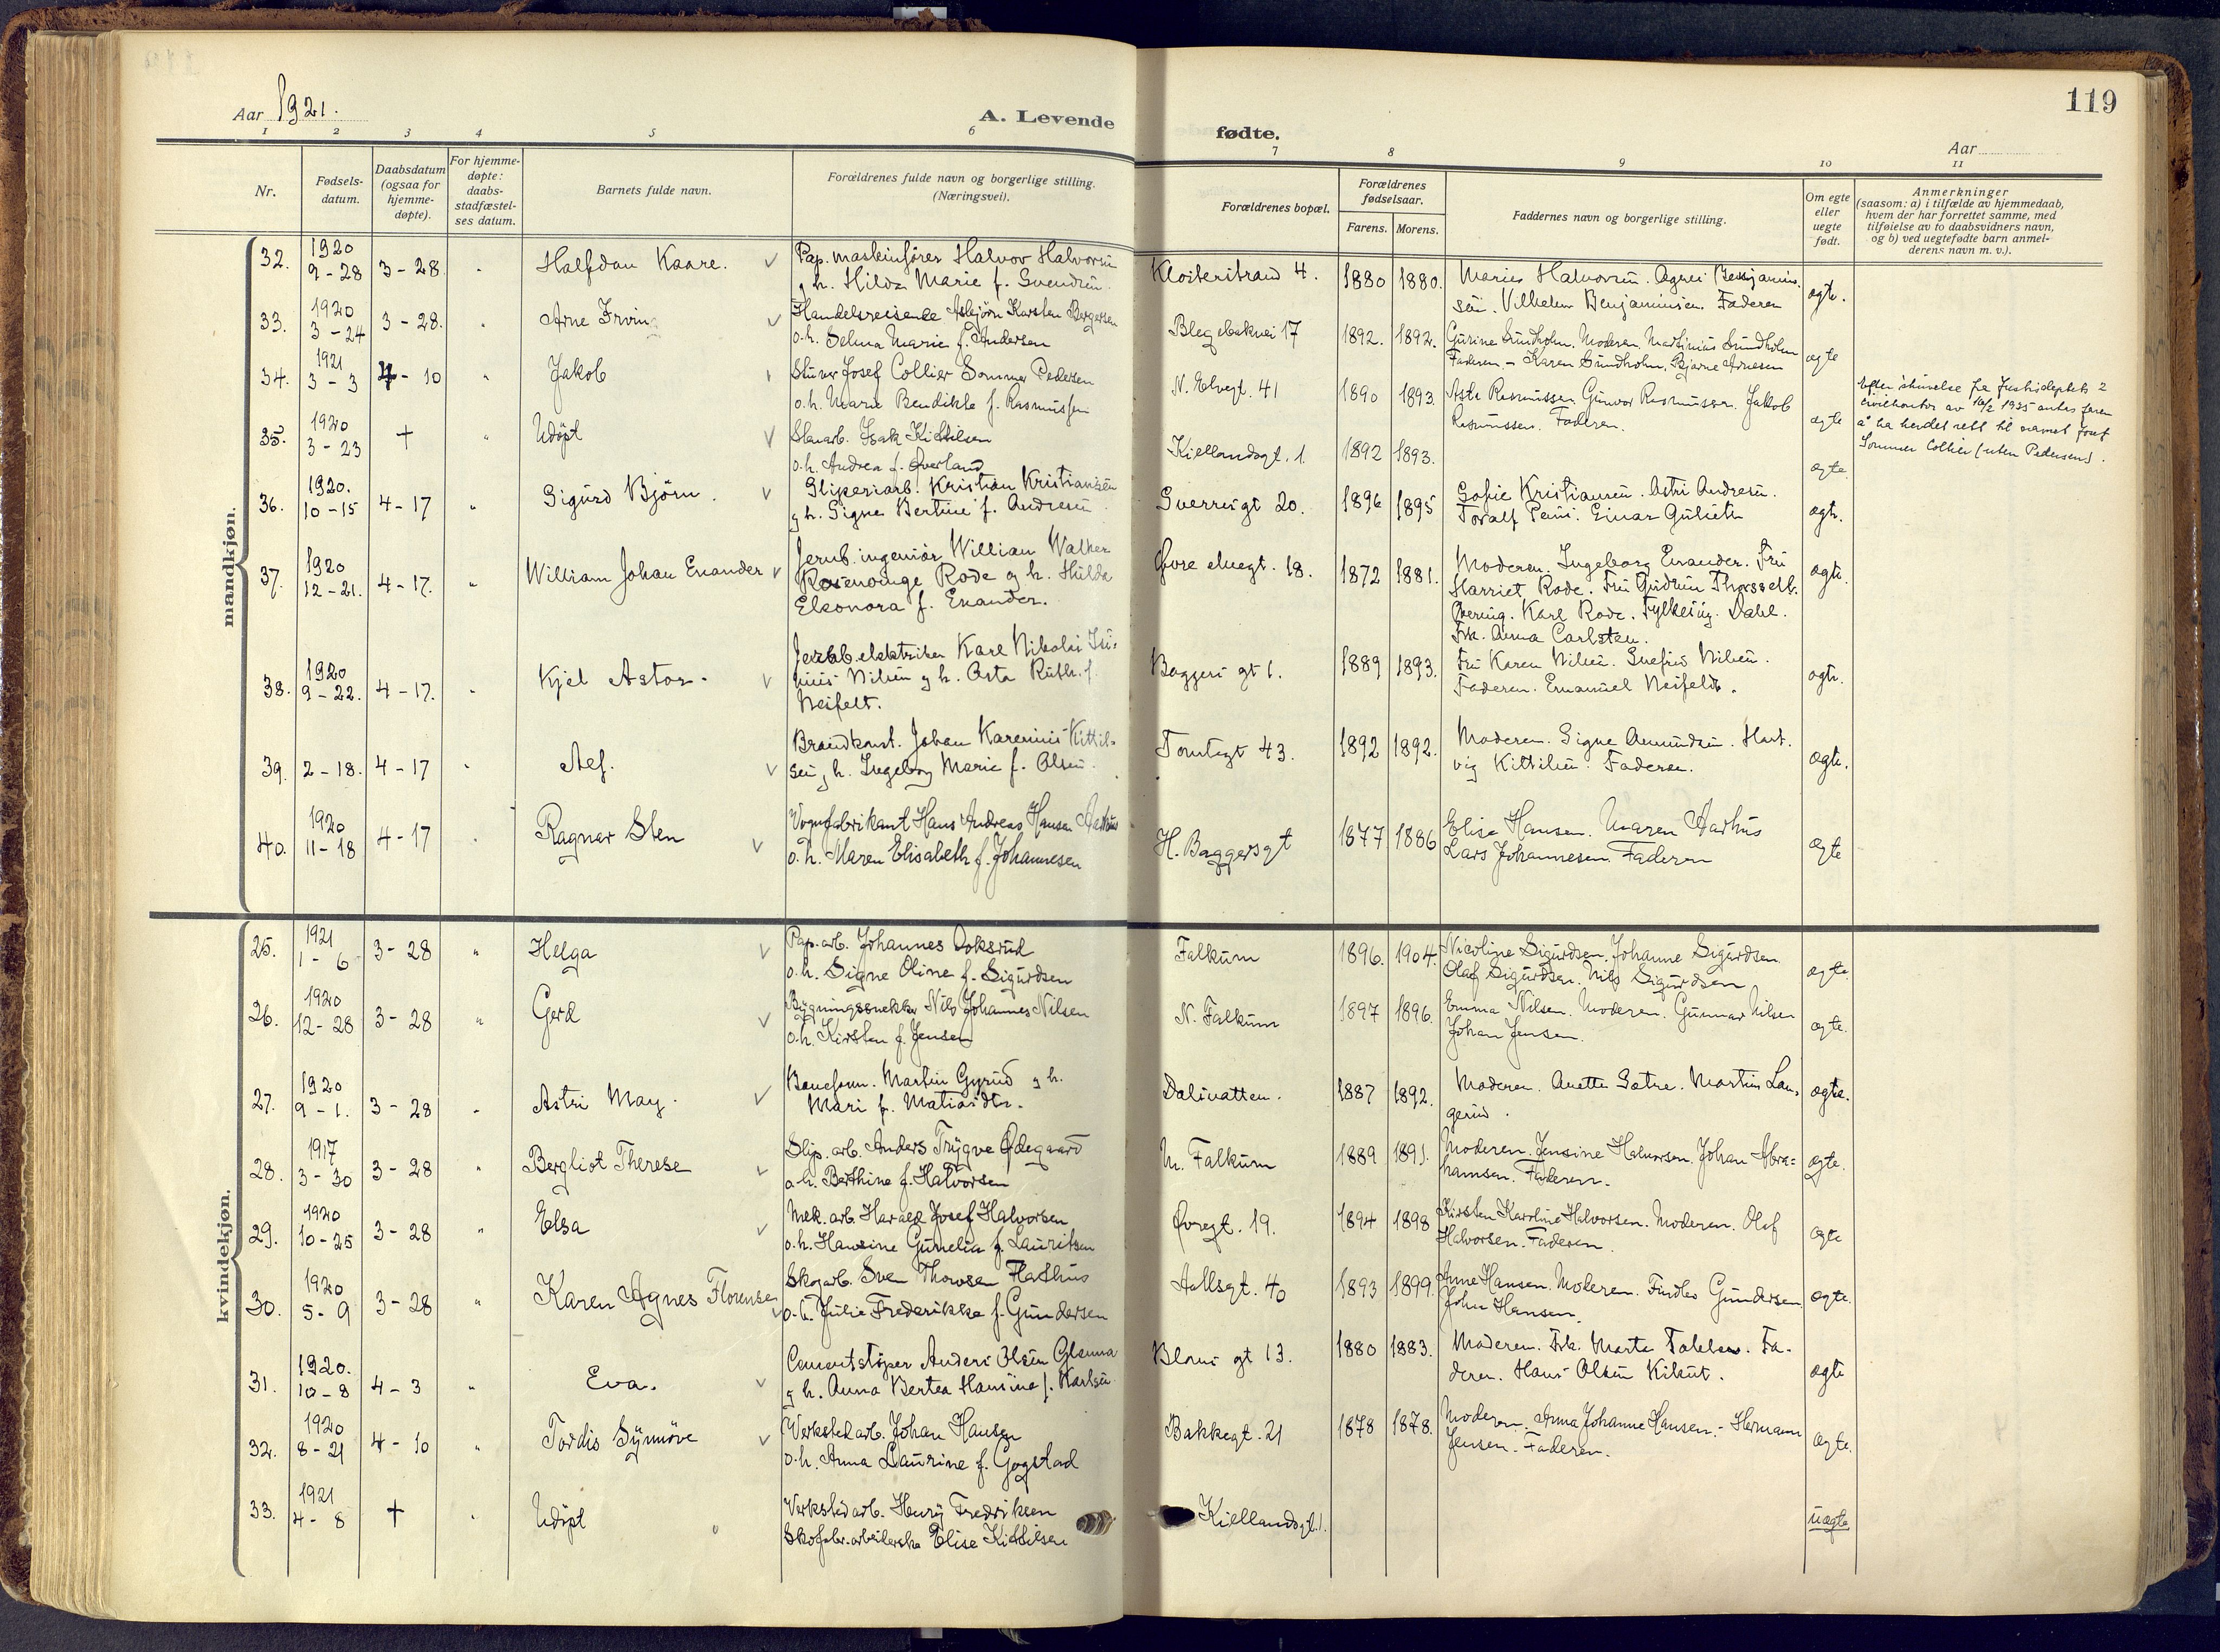 119
Aar 1921.
A. Levende
fødte.
Aar
1 2 3 4 5 6 7 8 9 10 11
Nr.
Fødsels-
datum.
Daabsdatum
(ogsaa for
hjemme-
døpte).
For hjemme-
døpte:
daabs-
stadfæstel-
ses datum.
Barnets fulde navn.
Forældrenes fulde navn og borgerlige stilling.
(Næringsvei).
Forældrenes bopæl.
Forældrenes
fødselsaar.
Farens. Morens.
Faddernes navn og borgerlige stilling.
Om egte
eller
uegte
født.
Anmerkninger
(saasom: a) i tilfælde av hjemmedaab,
hvem der har forrettet samme, med
tilføielse av to daabsvidners navn,
og b) ved uegtefødte barn anmel-
derens navn m. v.).
mandkjøn.
32. 1920 9-28 3-28. " Halfdan Kaare. Pap. maskinfører Halvor Halvorsen
g h. Hilda Marie f. Svendsen
Klosterstrand 4. 1880 1880. Marie Halvorsen. Agnes Benjamin-
sen. Vilhelm Benjaminsen. Faderen ægte.
33. 1920 3-24 3-28. " Arne Irvin Handelsreisende Asbjørn Karsten Bergersen
o.h. Selma Marie f. Andersen
Blegebakvei 17 1892. 1892. Gurine Sundholm. Moderen. Martinius Sundholm
Faderen - Karen Sundholm. Bjarne Arnesen ægte
34. 1921 3-3 4-10 " Jakob Stuver Josef Collier Sommer Pedersen
o.h. Marie Bendikte f. Rasmussen
N. Elvegt. 41 1890 1893. Asta Rasmussen. Gunvor Rasmussen. Jakob
Rasmussen. Faderen. ægte
Efter skrivelse fra Justisdeptets 2
civilkontor av 16/2 1925 antas faren
å ha hevdet rett til navnet Josef
Sommer Collier (uten Pedersen).
35. 1920 3-23 † " Udøpt Slenarb. Isak Kittilsen
o.h. Andrea f. Øverland
Kiellandsgt. 1 1892 1893. ægte
36. 1920. 10-15 4-17 " Sigurd Bjørn. Sliperiarb. Kristian Kristiansen
g h. Signe Bertine f. Andresen
Sverresgt 20. 1896 1895 Sofie Kristiansen. Astri Andresen.
Toralf Einar ægte.
37. 1920 12-21. 4-17. " William Johan Enander Jernb. ingeniør William Walter
Rosenvinge Rode og h. Hilda
Eleonora f. Enander.
Øvre elvegt. 18. 1872 1881. Moderen. Ingeborg Enander. Fru
Harriet Rode. Fru Gudrun
Karl Rode. Fylkesing. Dahl.
Frk. Anna Carlsten. ægte.
38. 1920 9-22. 4-17. " Kjel Astor. Jernb. elektriker Karl Nikolai
Nilsen g h. Asta Ruth f.
Neifelt.
Baggers gt 1. 1889 1893. Fru Karen Nilsen. Snefrid Nilsen.
Faderen. Emanuel Neifeldt. ægte.
39. 2-18. 4-17 " Alf. Brandkonst. Johan Karenius Kittil-
sen g h. Ingeborg Marie f. Olsen.
Tomtegt 43. 1892 1892. Moderen. Signe Amundsen. Hart-
vig Kittilsen. Faderen. ægte.
40. 1920 11-18 4-17 " Ragnar Sten Vognfabrikant Hans Andreas Hansen Aarhus
o.h. Maren Elisabeth f. Johannesen
H. Baggersgt 1877 1886 Elise Hansen. Maren Aarhus
Lars Johannesen. Faderen ægte
kvindekjøn.
25. 1921 1-6 3-28 " Helga Pap.-arb. Johannes Doksrud
o.h. Signe Oline f. Sigurdsen
Falkum 1896. 1904. Nicoline Sigurdsen. Johanne Sigurdsen
Olaf Sigurdsen. Nils Sigurdsen ægte
26. 1920 12-28 3-28 " Gerd Bygningssnekker Nils Johannes Nilsen
o.h. Kirsten f. Jensen
N. Falkum 1897 1896. Emma Nilsen. Moderen. Gunnar Nilsen
Johan Jensen. ægte.
27. 1920 9-1. 3-28 " Astri May. Baneform. Martin Gyrud g h.
Mari f. Matiasdtr.
Dalsvatten. 1887 1892. Moderen. Anette Sætre. Martin Lan-
gerud. ægte.
28. 1917 3-30 3-28 " Bergliot Therese Slip. arb. Anders Trygve Ødegaard
o.h. Berthine f. Halvorsen
N. Falkum 1889 1891. Moderen. Jensine Halvorsen. Johan Abra-
hamsen. Faderen. ægte.
29. 1920 10-25 3-28 " Elsa Mek. arb. Harald Josef Halvorsen
o.h. Hansine Gunelia f. Lauritsen
Øvregt. 19. 1894 1898 Kirsten Karoline Halvorsen. Moderen. Olaf
Halvorsen. Faderen. ægte
30. 1920 5-9 3-28 " Karen Agnes Florense Skogarb. Sven Thovsen Flathus
o.h. Julie Frederikke f. Gundersen
Aallsgt. 40 1893 1899. Anne Hansen. Moderen. Gundersen
John Hansen. ægte.
31. 1920. 10-8 4-3 " Eva. Cementstøper Anders Olsen Glenna
g h. Anna Bertea Hansine f. Karlsen
Bloms gt 13. 1880 1883. Moderen. Frk. Marta Fa-
deren. Hans Olsen Kikut. ægte
32. 1920 8-21 4-10 " Tordis Synnøve Verksted arb. Johan Hansen
o.h. Anna Laurine f. Gogstad
Bakkegt. 21 1878 1878. Moderen. Anna Johanne Hansen. - Hermann
Jensen. Faderen. ægte.
33. 1921 4-8 † " Udøpt Verksted arb. Henry Fredriksen
Skofabr.arbeiderske Elise Kittilsen
Kiellandsgt. 1. uægte